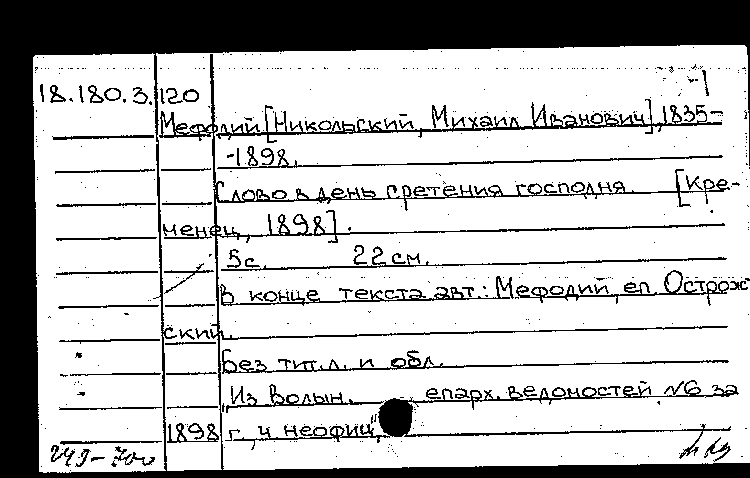 -1
18.180.3.120
Мефодий [Никольский, Михаил Иванович], 1835-
-1898.
Слово в день сретения господня. [Кре-
менец, 1898].
5с. 22 см.
В конце текста авт.: Мефодий, еп. Острож
ский.
Без тит.л. и обл.
"Из Волын. епарх. ведомостей №6 за
1898 г., ч. неофиц."
249-700